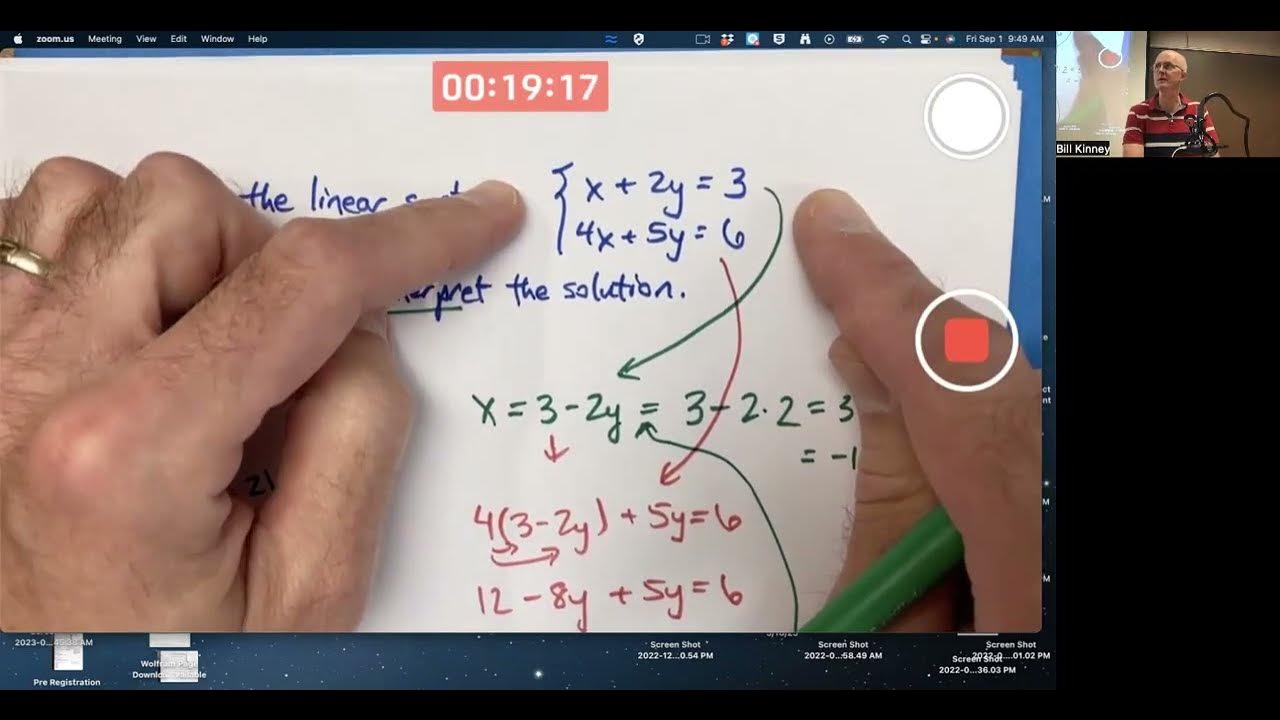 zoom.us Meeting View Edit Window Help Fri Sep 1 9:49 AM
00:19:17
Bill Kinney
the linear
x + 2y = 3
4x + 5y = 6
the solution.
x = 3 - 2y = 3 - 2 · 2 = 3
= -1
21
4(3 - 2y) + 5y = 6
12 - 8y + 5y = 6
Screen Shot
2022-12...0.54 PM
Screen Shot
2022-0...58.49 AM
Screen Shot
2022-0....01.02 PM
Screen Shot
2022-0...36.03 PM
2023-0...45.38 AM
Pre Registration
Wolfram Page